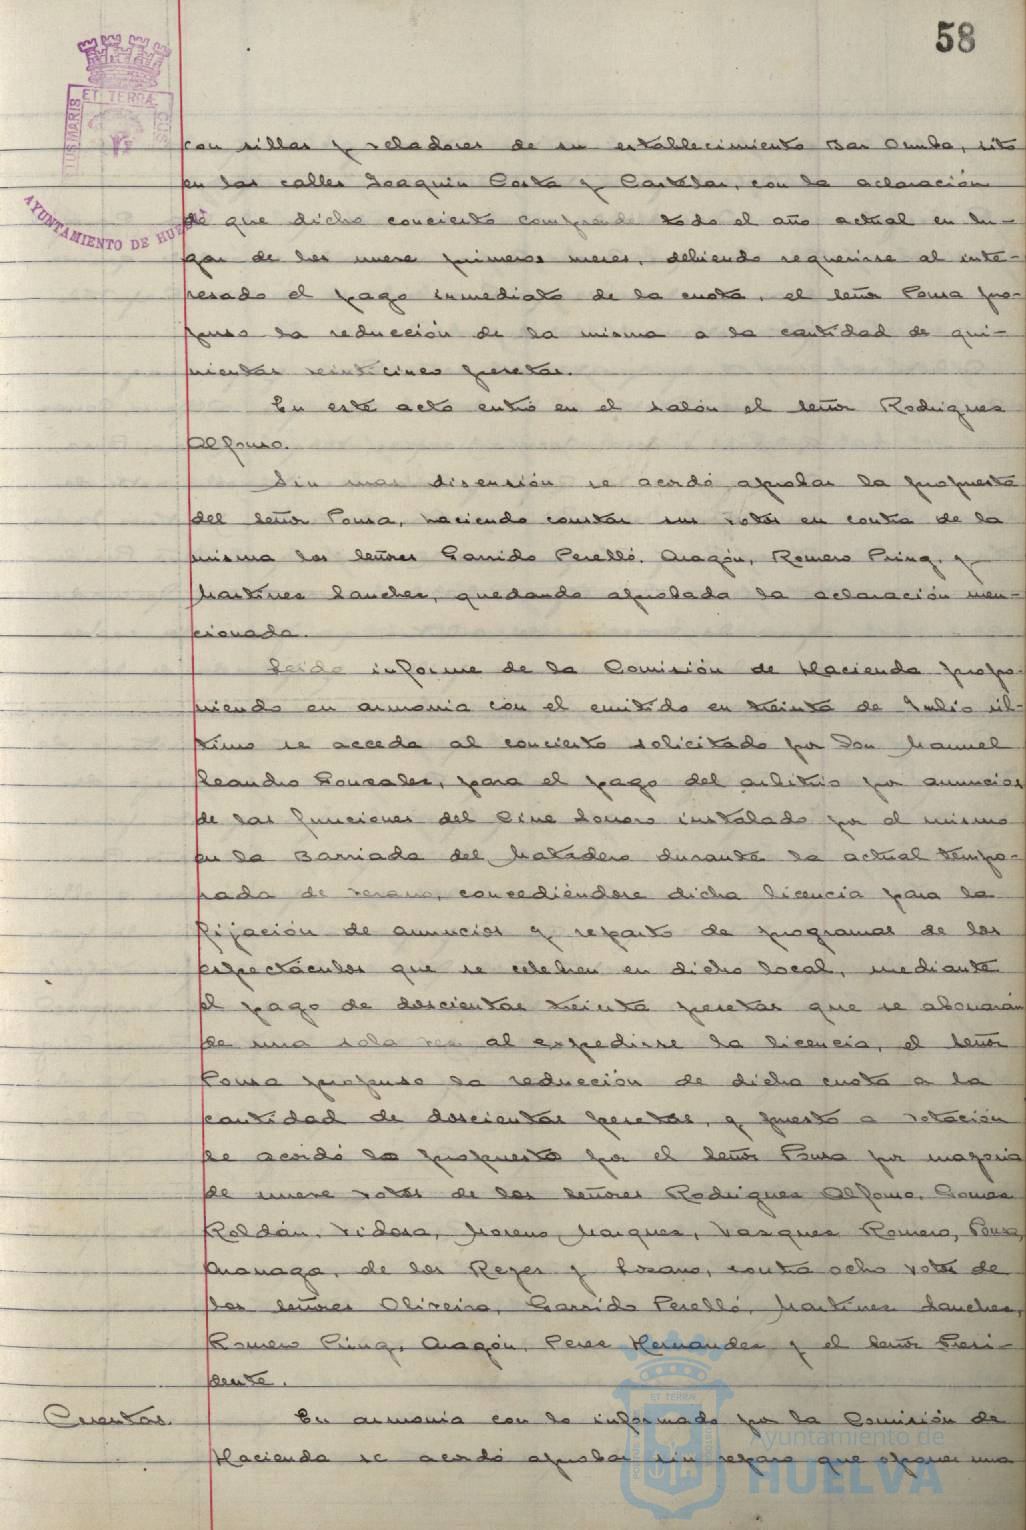 58
ET TERRÆ
AYUNTAMIENTO DE HUELVA
con sillas y veladores de su establecimiento Bar Onuba, sito
en las calles Joaquin Costa y Castelar, con la aclaración
de que dicho concierto comprende todo el año actual en lu-
gar de los nueve primeros meses, debiendo requerirse al inte-
resado el pago inmediato de la cuota, el señor Pousa pro-
puso la reducción de la misma a la cantidad de qui-
nientas veinticinco pesetas.
En este acto entró en el salón el señor Rodriguez
Alfonso.
Sin mas discusión se acordó aprobar la propuesta
del señor Pousa, haciendo constar sus votos en contra de la
misma los señores Garrido Perelló, Aragón, Romero Pring, y
Martinez Sanchez, quedando aprobada la aclaración men-
cionada.
Leido informe de la Comisión de Hacienda propo-
niendo en armonia con el emitido en treinta de Julio úl-
timo se acceda al concierto solicitado por Don Manuel
Leandro Gonzalez, para el pago del arbitrio por anuncios
de las funciones del Cine Sonoro instalado por el mismo
en la Barriada del Matadero durante la actual tempo-
rada de verano, concediéndose dicha licencia para la
fijación de anuncios y reparto de programas de los
espectáculos que se celebren en dicho local, mediante
el pago de doscientas treinta pesetas que se abonarán
de una sola vez al expedirse la licencia, el señor
Pousa propuso la reducción de dicha cuota a la
cantidad de doscientas pesetas, y puesto a votación
se acordó lo propuesto por el señor Pousa por mayoria
de nueve votos de los señores Rodriguez Alfonso, Gomez
Roldán, Vidosa, Moreno Marquez, Vazquez Romero, Pousa,
de los Reyes y Lozano, contra ocho votos de
los señores Oliveira, Garrido Perelló, Martinez Sanchez,
Romero Pring, Aragón, Perez Hernandez y el señor Presi-
dente.
Cuentas.
En armonia con lo informado por la Comisión de
Hacienda se acordó aprobar sin reparo que oponer una
Ayuntamiento de
HUELVA